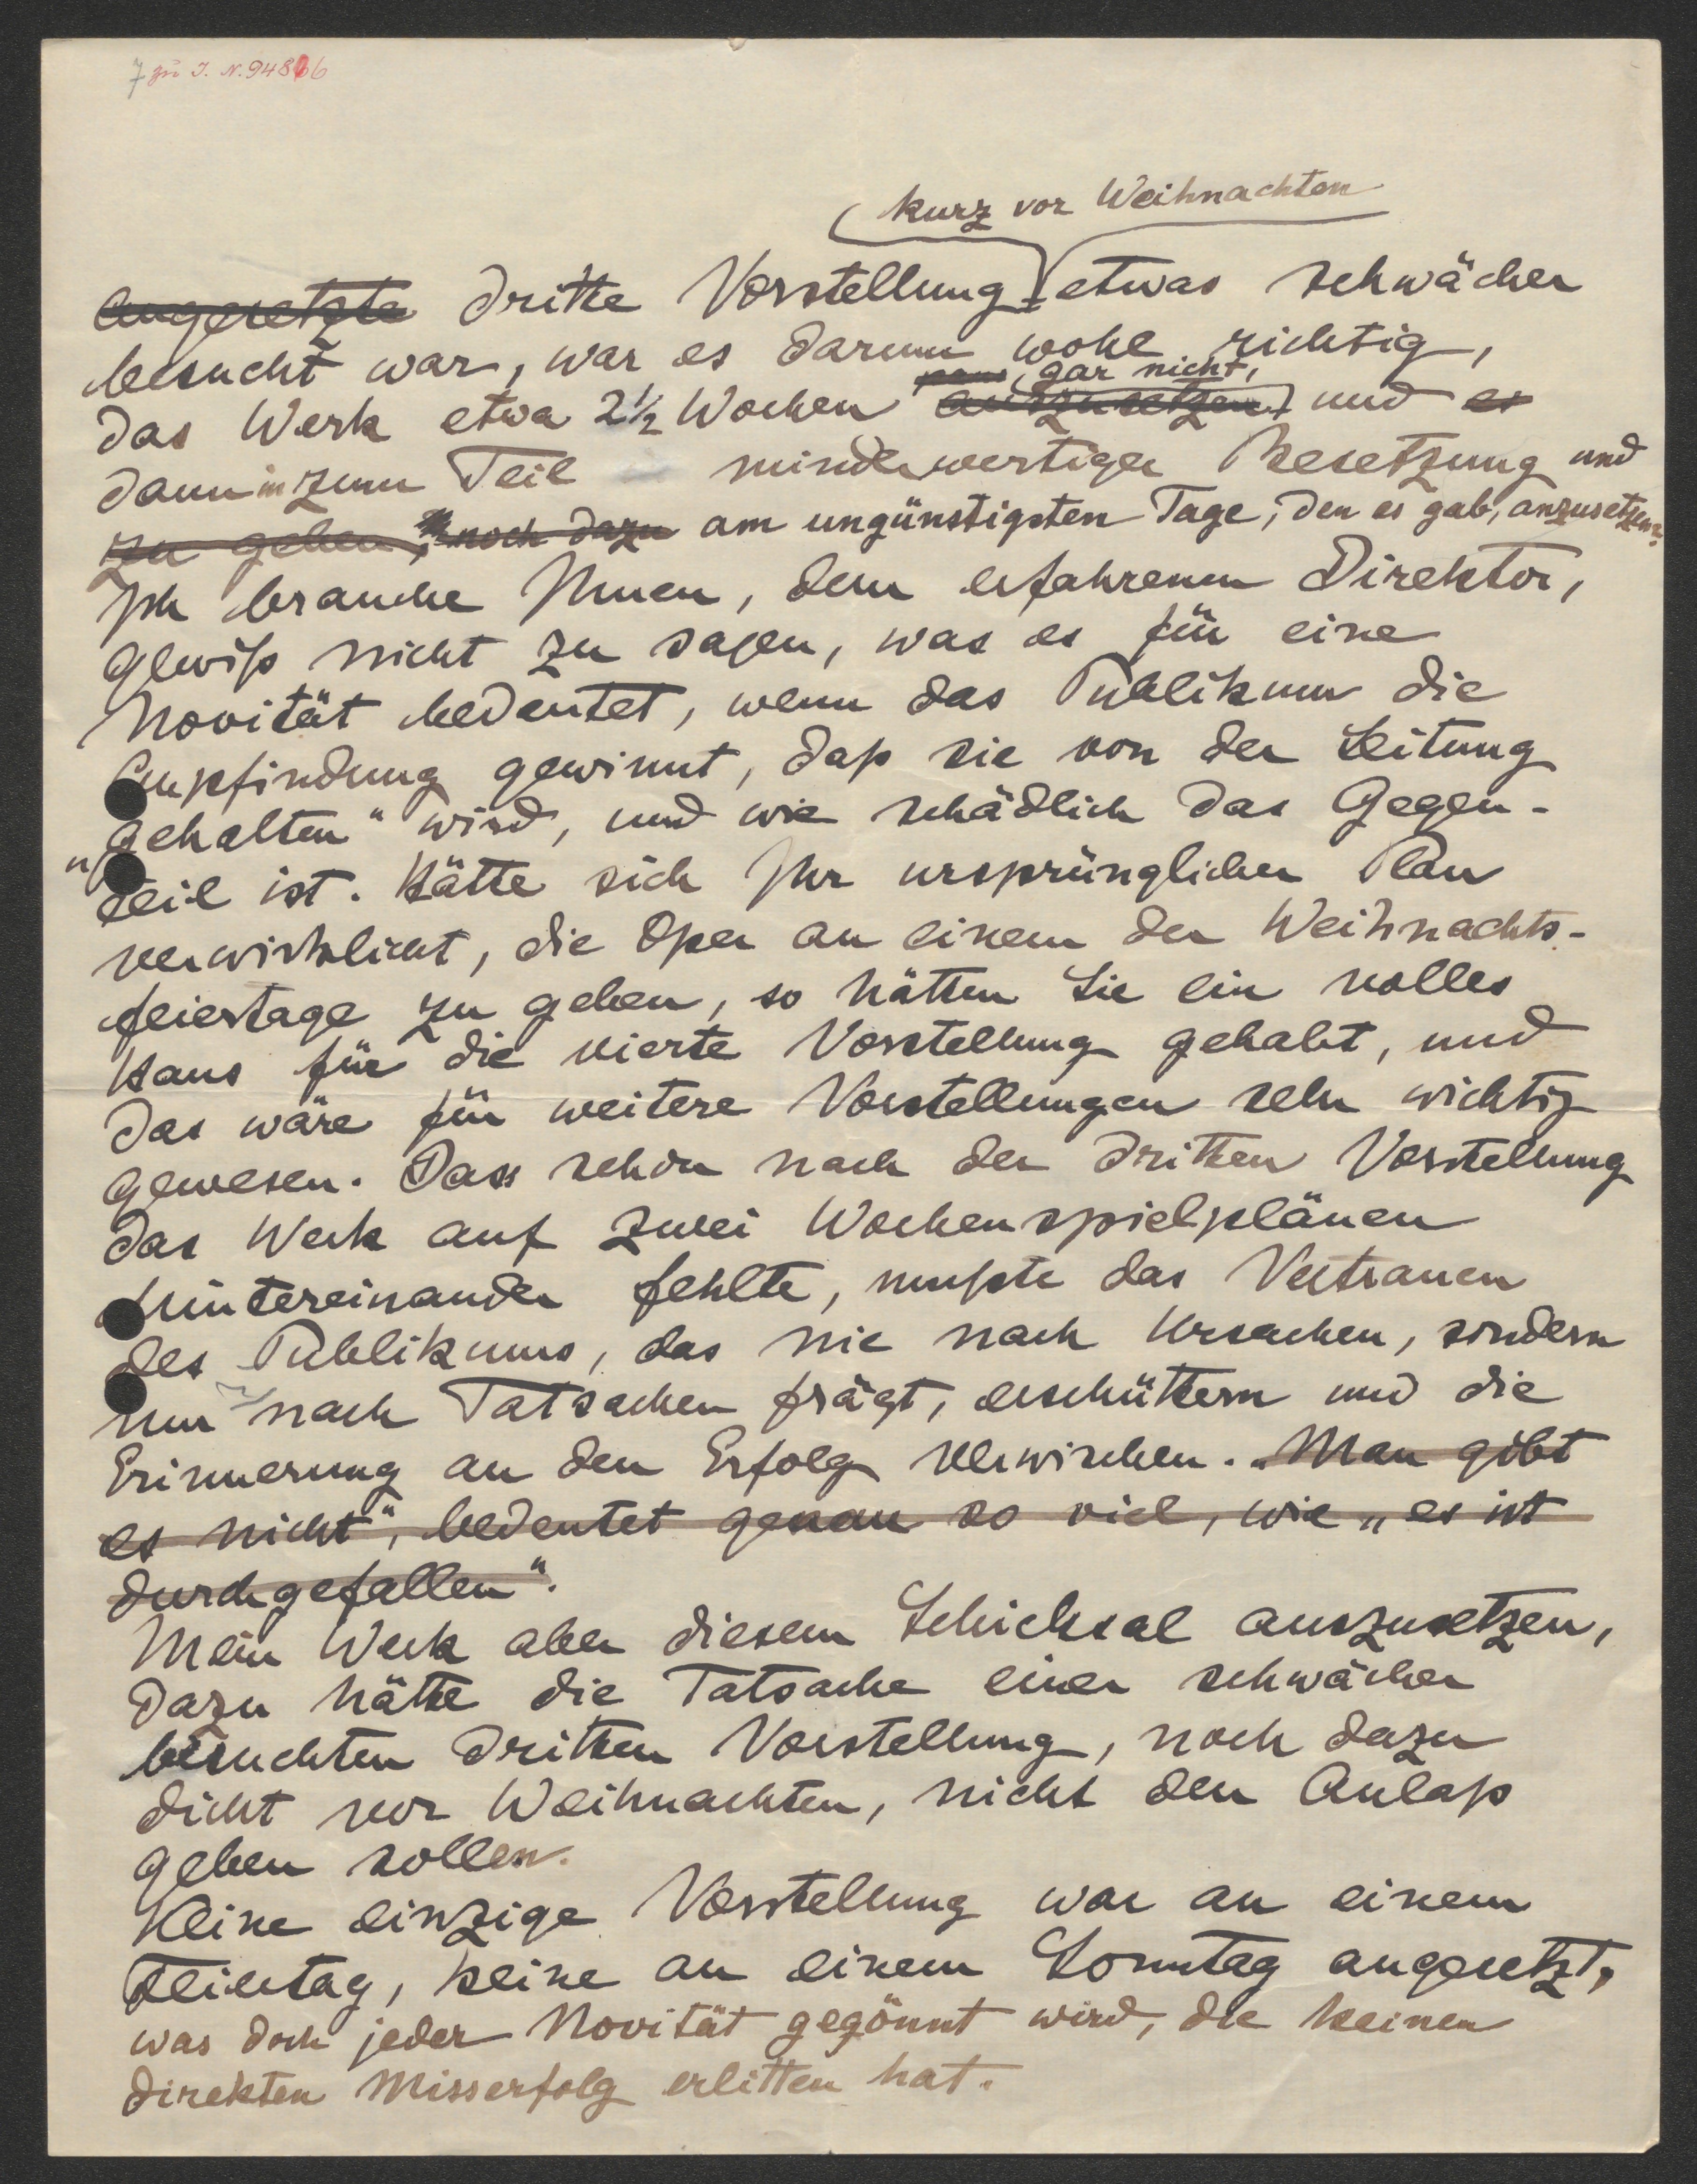 7 zu I. N. 94866
kurz vor Weihnachten
angesetzte dritte Vorstellung etwas schwächer
besucht war, war es darum wohl richtig,
gar nicht,
das Werk etwa 2½ Wochen auszusetzen und es
dann in zum Teil minderwertiger Besetzung und
zu geben, noch dazu am ungünstigsten Tage, den es gab, anzusetzen?
Ich brauche Ihnen, dem erfahrenen Direktor,
gewiß nicht zu sagen, was es für eine
Novität bedeutet, wenn das Publikum die
Empfindung gewinnt, daß sie von der Leitung
„gehalten" wird, und wie schädlich das Gegen-
teil ist. Hätte sich Ihr ursprünglicher Plan
verwirklicht, die Oper an einem der Weihnachts-
feiertage zu geben, so hätten Sie ein volles
Haus für die vierte Vorstellung gehabt, und
das wäre für weitere Vorstellungen sehr wichtig
gewesen. Dass schon nach der dritten Vorstellung
das Werk auf zwei Wochenspielplänen
hintereinander fehlte, mußte das Vertrauen
des Publikums, das nie nach Ursachen, sondern
nur nach Tatsachen frägt, erschüttern und die
Erinnerung an den Erfolg verwischen. „Man gibt
es nicht", bedeutet genau so viel, wie „es ist
durchgefallen".
Mein Werk aber diesem Schicksal auszusetzen,
dazu hätte die Tatsache einer schwächer
besuchten dritten Vorstellung, noch dazu
dicht vor Weihnachten, nicht den Anlaß
geben sollen.
Keine einzige Vorstellung war an einem
Feiertag, keine an einem Sonntag angesetzt,
was doch jeder Novität gegönnt wird, die keinen
direkten Misserfolg erlitten hat.